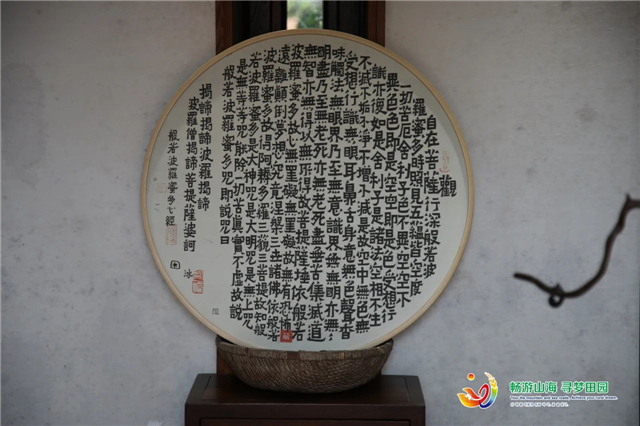 觀
自在菩薩行深般若波
羅蜜多時照見五蘊皆空度
一切苦厄舍利子色不異空空不
異色色即是空空即是色受想行
識亦復如是舍利子是諸法空相不生
不滅不垢不淨不增不減是故空中無色無
受想行識無眼耳鼻舌身意無色聲香
味觸法無眼界乃至無意識界無無明亦無無
明盡乃至無老死亦無老死盡無苦集滅道
無智亦無得以無所得故菩提薩埵依般若
波羅蜜多故心無罣礙無罣礙故無有恐怖
遠離顛倒夢想究竟涅槃三世諸佛依般若
波羅蜜多故得阿耨多羅三藐三菩提故知般
若波羅蜜多是大神咒是大明咒是無上咒
是無等等咒能除一切苦真實不虛故說
般若波羅蜜多咒即說咒曰
揭諦揭諦波羅揭諦
波羅僧揭諦菩提薩婆訶
般若波羅蜜多心經
冰
畅游山海 寻梦田园
Tour the mountain and sea roads, Achieve your rural dream.